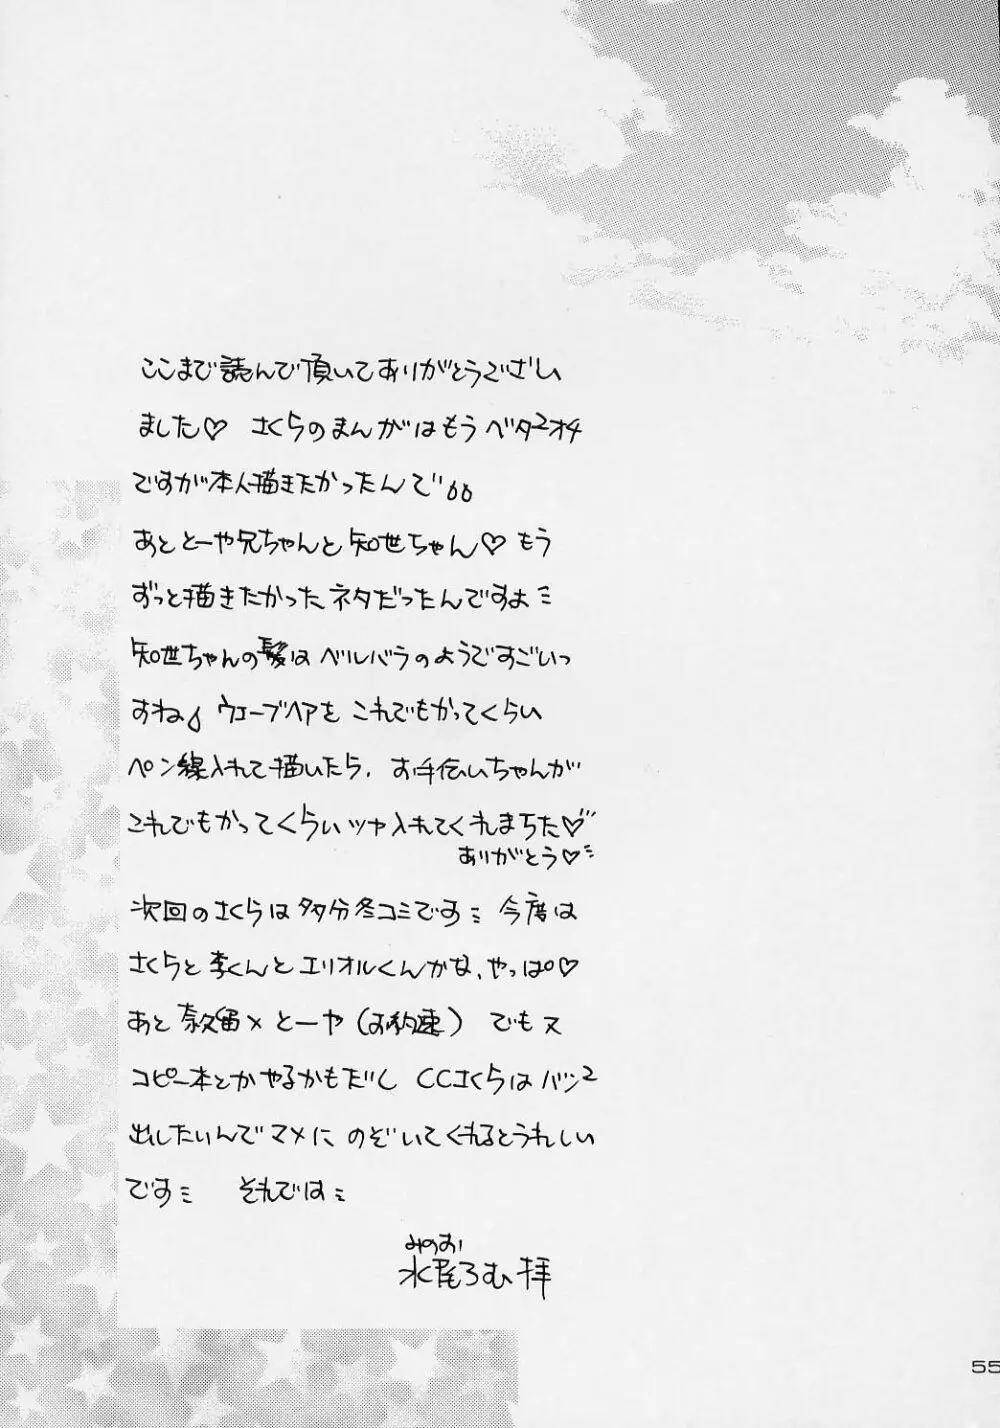 ここまで読んで頂いてありがとうござい
ました♡ さくらのまんがはもう ベタ2オチ
ですが本人描きたかったんで
あと とーや兄ちゃんと 知世ちゃん♡ もう
ずっと描きたかったネタだったんですよ
知世ちゃんの髪は ベルバラのようですごいっ
すね ウェーブヘアを これでもかってくらい
ペン線入れて描いたら、お手伝いちゃんが
これでもかってくらい ツヤ入れてくれまちた♡
ありがとう♡
次回のさくらは 多分冬コミです 今度は
さくらと 李くんと エリオルくんかな、やっぱ♡
あと 奈久留×とーや(お約束) でも又
コピー本とかやるかもだし CCさくらは バン2
出したいんでマメに のぞいてくれるとうれしい
です それでは
みのおか
水尾ろむ 拝
55